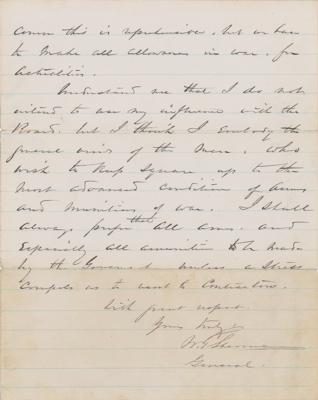 course this is reprehensive, but we have
to make all allowance in war, for
actualities.
Understand me that I do not
intend to use my influence with the
Board, but I think I embody the
general views of the men, who
wish to keep square up to the
most advanced condition of arms
and munitions of war. I shall
always prefer that all arms, and
especially all ammunition to be made
by the Government unless a stress
compels us to resort to Contractors.
With great respect,
Yours truly
W. T. Sherman
General.